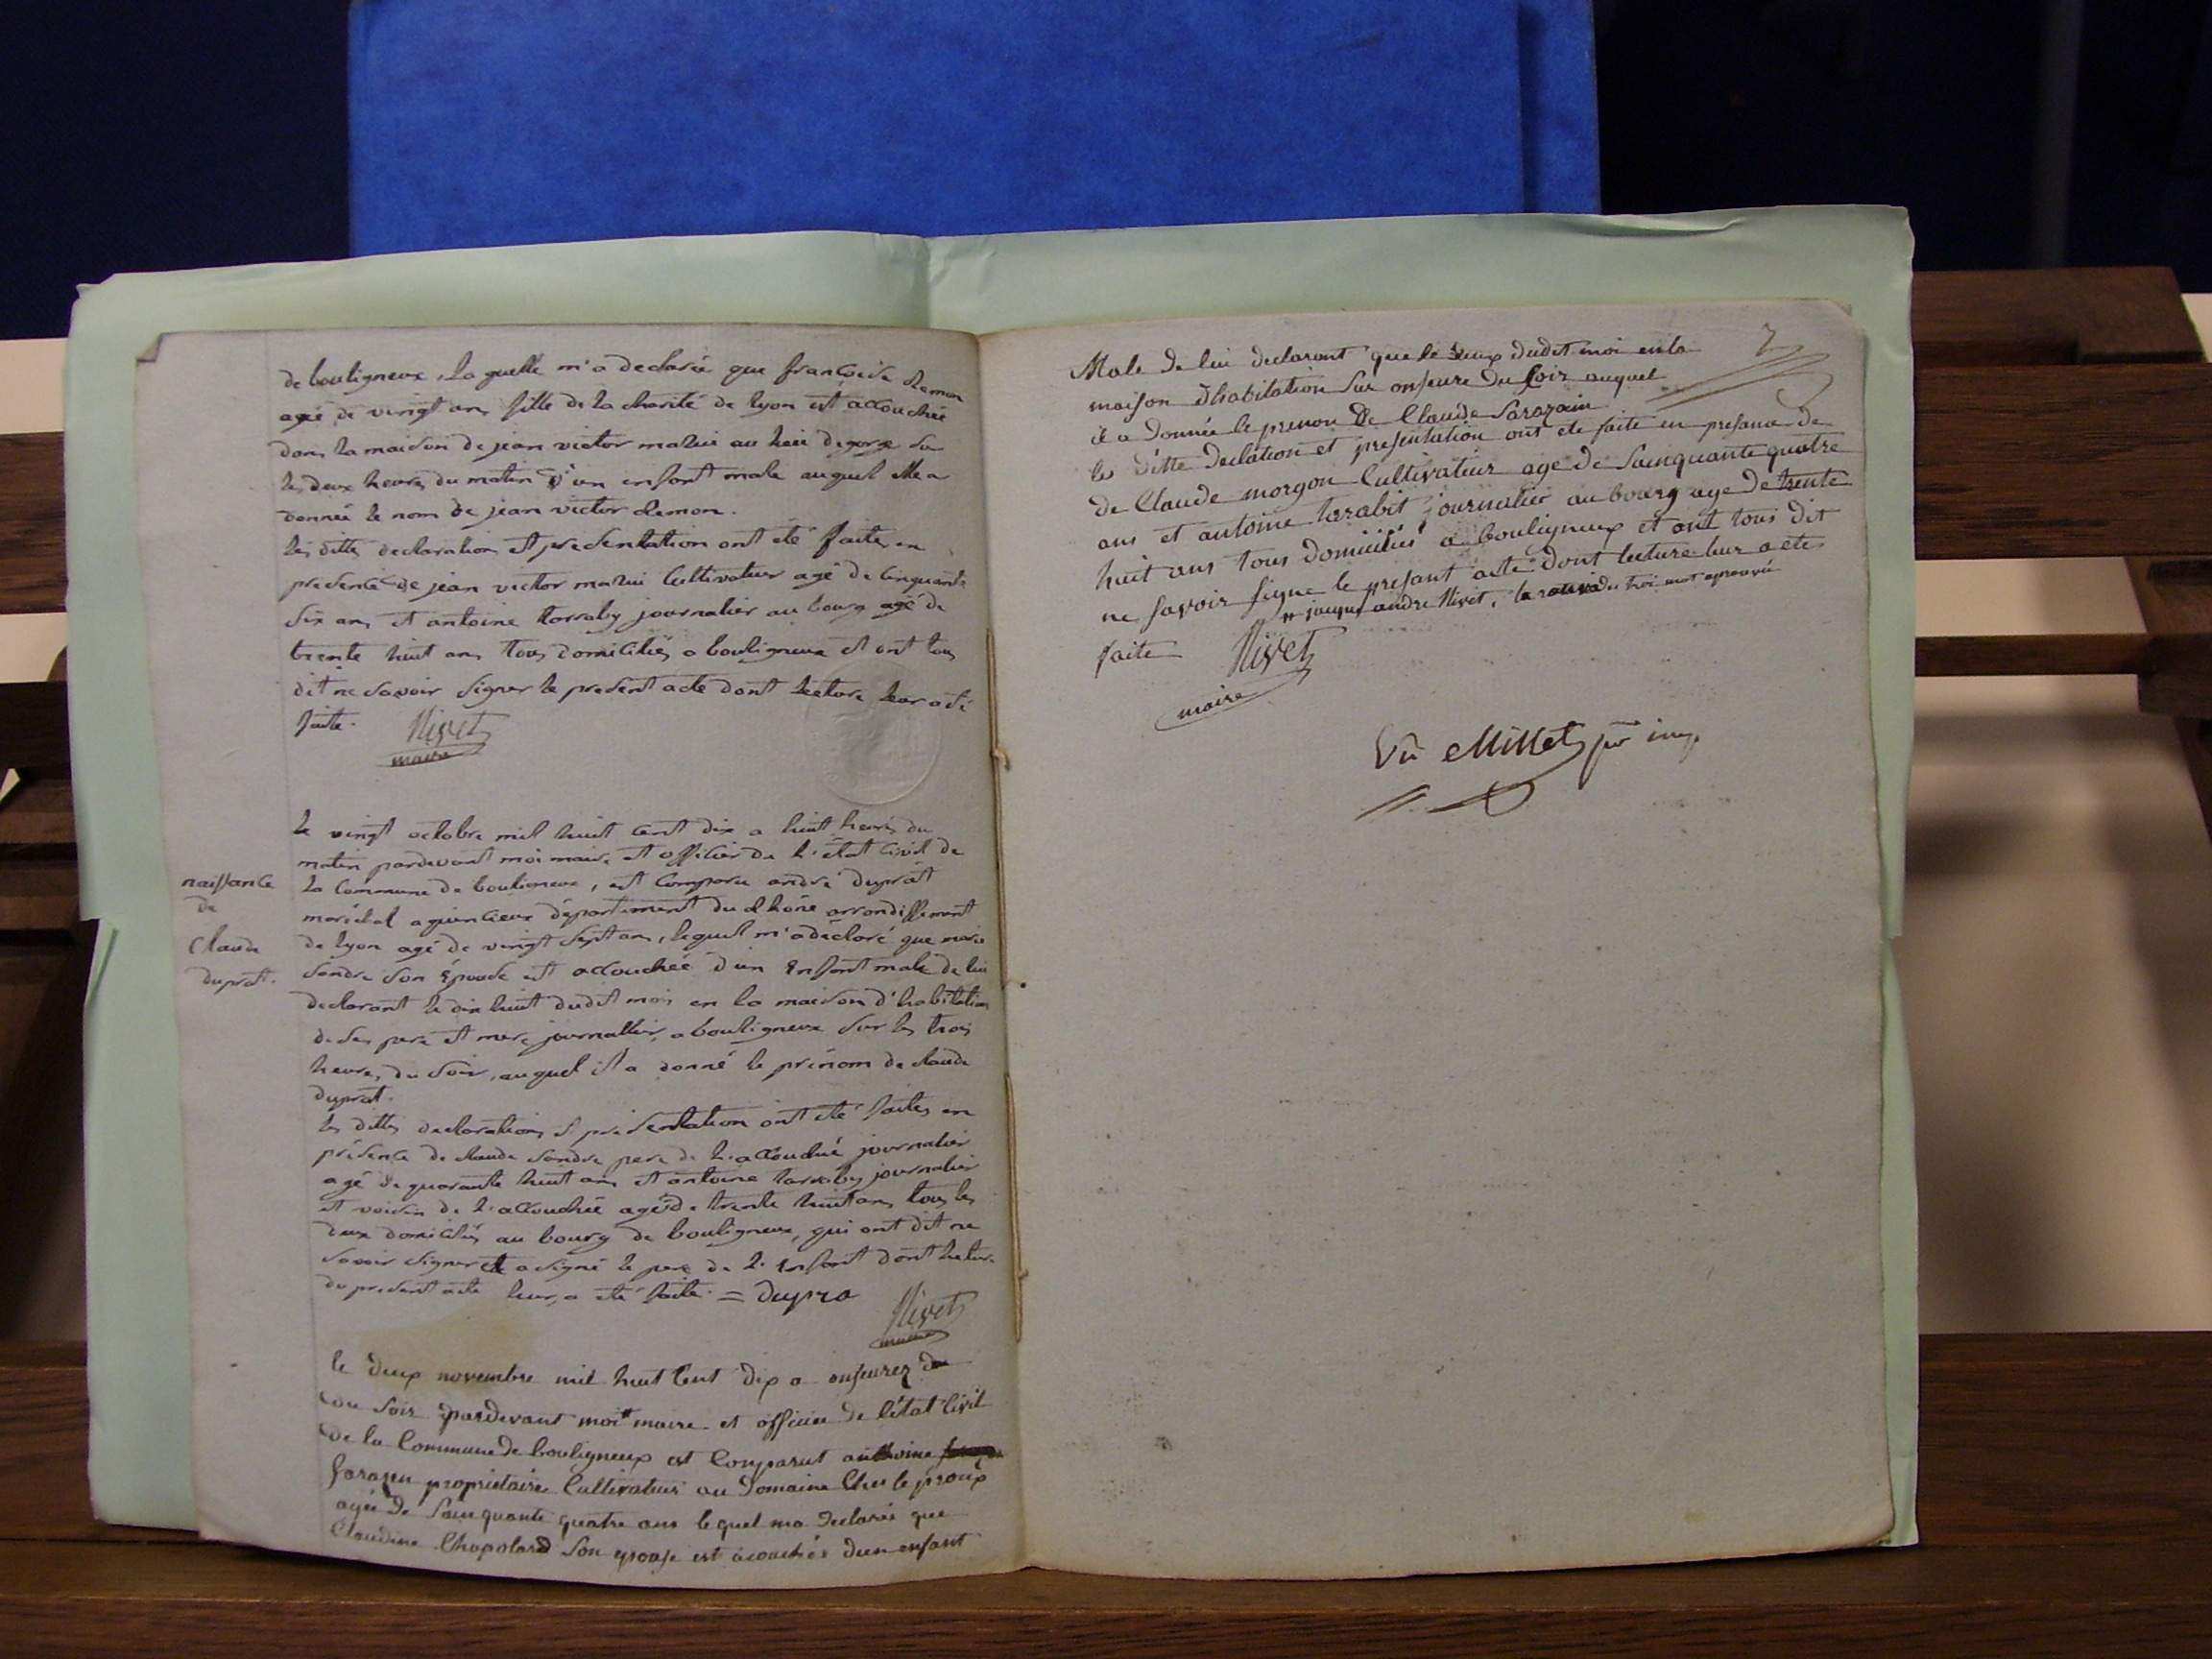 de bouligneux, la quelle m'a declarée que francoise demon
agée de vingt ans fille de la charité de lyon est accouchée
dans la maison de jean victor mazui au lieu de gorge sur
les deux heures du matin d'un enfant male auquel elle a
donnée le nom de jean victor demon.
les dittes declaration et presentation ont été faites en
presence de jean victor mazui cultivateur agé de cinquante
six ans et antoine tarraby journalier au bourg agé de
trente huit ans tous domiciliés a bouligneux et ont tous
dit ne savoir signer le present acte dont lecture leur a été
faite. Nivet
maire
naissance
de
Claude
duprat.
le vingt octobre mil huit cent dix a huit heures du
matin pardevant moi maire et officier de l'état civil de
la commune de bouligneux, est comparu andré duprat
maréchal a quincieux département du rhône arrondissement
de lyon agé de vingt sept ans, lequel m'a déclaré que marie
sandre son épouse est accouchée d'un enfant male de lui
declarant le dix huit dudit mois en la maison d'habitation
de ses pere et mere journallier, a bouligneux sur les trois
heures du soir, auquel il a donné le prénom de claude
duprat.
les dittes declarations et présentation ont été faites en
présence de claude sandre pere de l'accouchée journalier
agé de quarante huit ans et antoine tarraby journalier
et voisin de l'accouchée agé de trente huit ans, tous les
deux domiciliés au bourg de bouligneux, qui ont dit ne
savoir signer et a signé le pere de l'enfant dont lecture
du present acte leur a été faite. = dupra
Nivet
maire
le deux novembre mil huit cent dix a onseures du
du soir pardevant moi # maire et officier de l'état civil
de la commune de bouligneux est comparut anthoine
sarazin propriétaire cultivateur au domaine
agée de sainquante quatre ans lequel ma declarée que
Claudine Chapolard son epouse est acouchée d'un enfant
7
Male de lui declarant que le deux dudit moi en la
maison d'habitation sur onseure du soir auquel
il a donnée le prenon de Claude Sarazain
les ditte declation et presentation ont ete faite en presance de
de Claude morgon Cultivateur age de sainquante quatre
ans et antoine tarabit journalier au bourg age de trente
huit ans tous domiciliés a bouligneux et ont tous dit
ne savoir signe le present acte dont lecture leur a ete
# jacques andre Nivet, la du troi mot aprouvée
faite Nivet
maire
Vu Millet